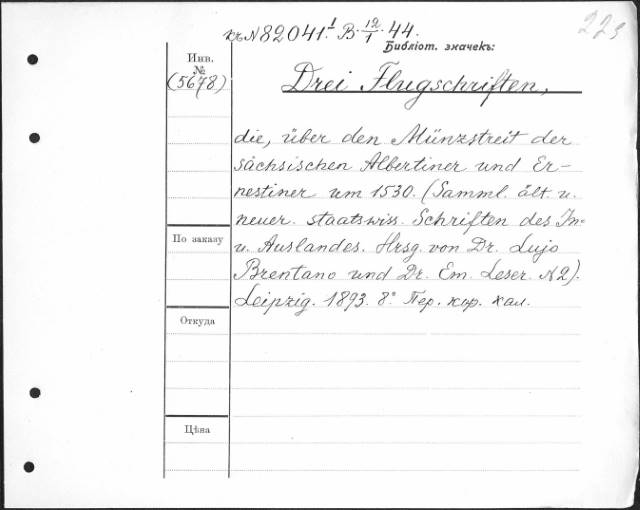 223
къ N 82041.¹ B. 12/1. 44.
Библіот. значекъ:
Инв.
№
(5678)
Drei Flugschriften,
die, über den Münzstreit der
sächsischen Albertiner und Er-
nestiner um 1530. (Samml. ält. u.
neuer. staatswiss. Schriften des In-
По заказу
u. Auslandes. Hrsg. von Dr. Lujo
Brentano und Dr. Em. Leser. N2).
Leipzig. 1893. 8° Пер. кор. кал.
Откуда
Цѣна